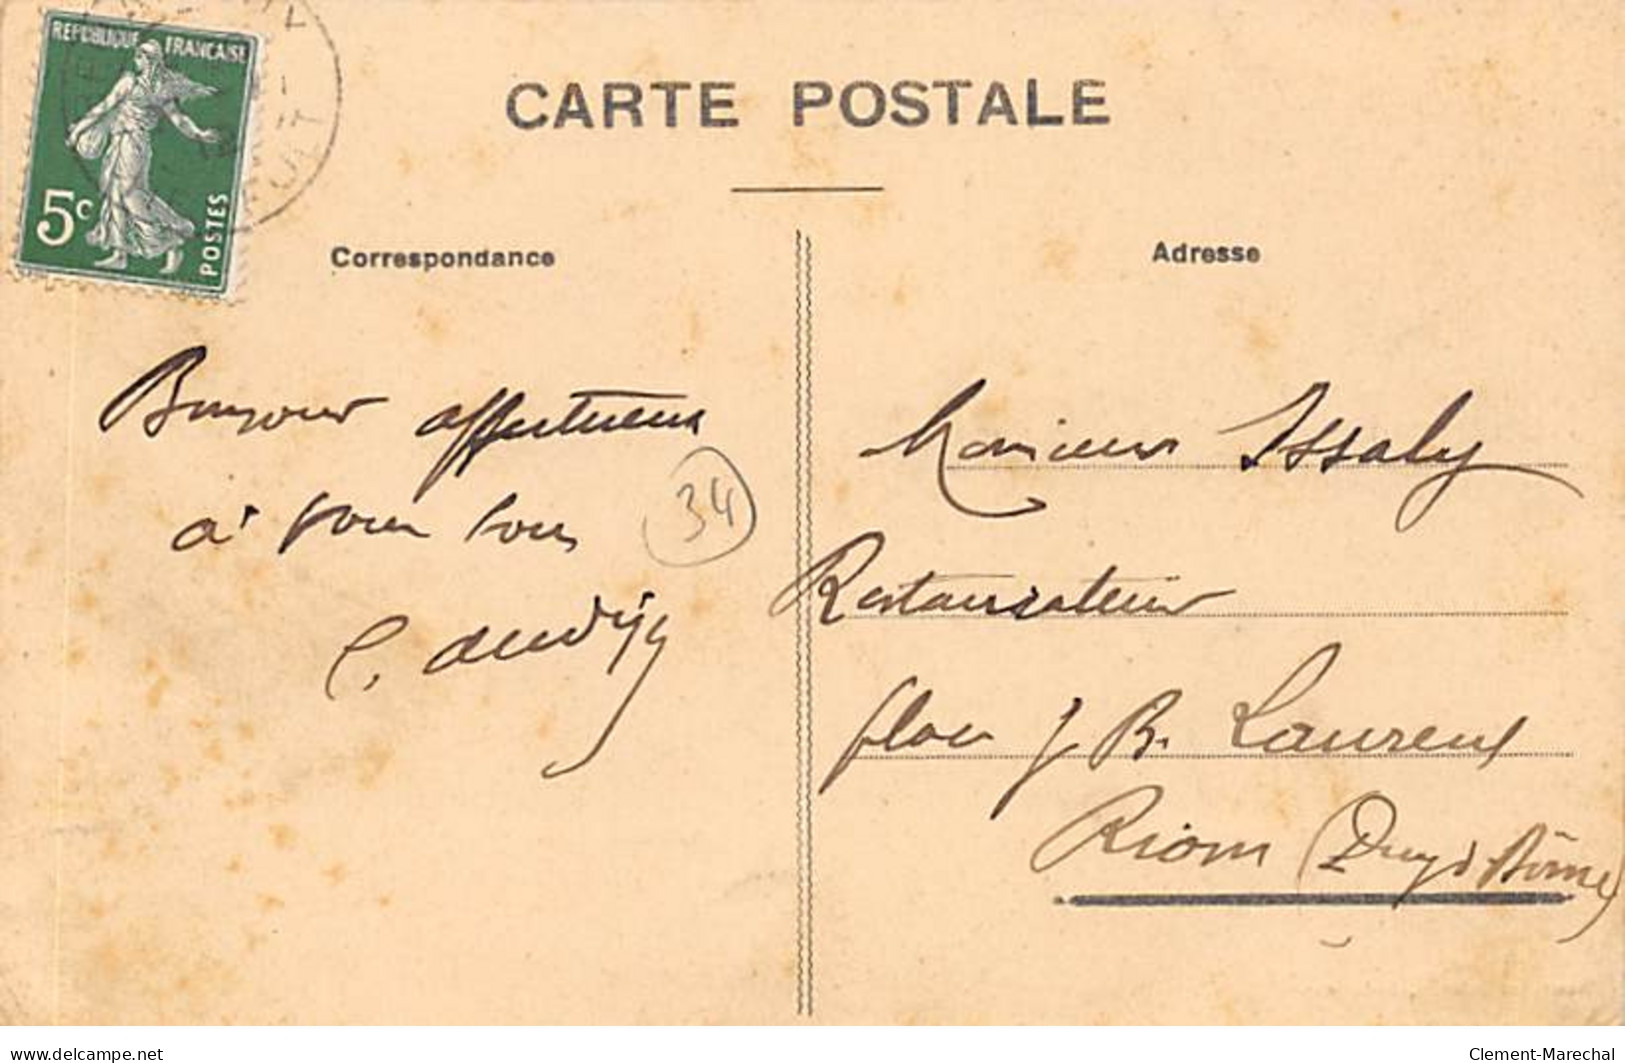 REPUBLIQUE FRANCAISE
5c
POSTES
CARTE POSTALE
Correspondance
Adresse
Bonjour affectueux
à vous tous
34
Monsieur Issaly
Restaurateur
place J. B. Laurent
Riom (Puy d Dôme)
www.delcampe.net
Clement-Marechal